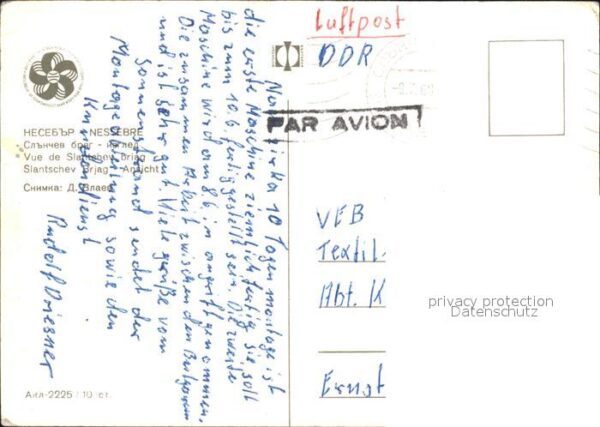 НЕСЕБЪР - NESSEBRE
Слънчев бряг - изглед
Vue de Slantschev Brjag
Slantschev Brjag - Ansicht
Снимка: Д. Влаев
Акл-2225 / 10 ст.
Nach 10 Tagen montage ist
die erste Maschine ziemlich fertig sie soll
bis zum 10.6. fertiggestellt sein. Die zweite
Maschine wird am 8.6. in angriff genommen.
Die zusammen Arbeit zwischen den Bulgaren
und ist sehr gut. Viele grüße vom
Sonnenstrand sendet der
Montageleitung sowie den
Kundendienst
Rudolf Driesner
Luftpost
DDR
PAR AVION
VEB
Textil.
Abt. K
Ernst
privacy protection
Datenschutz